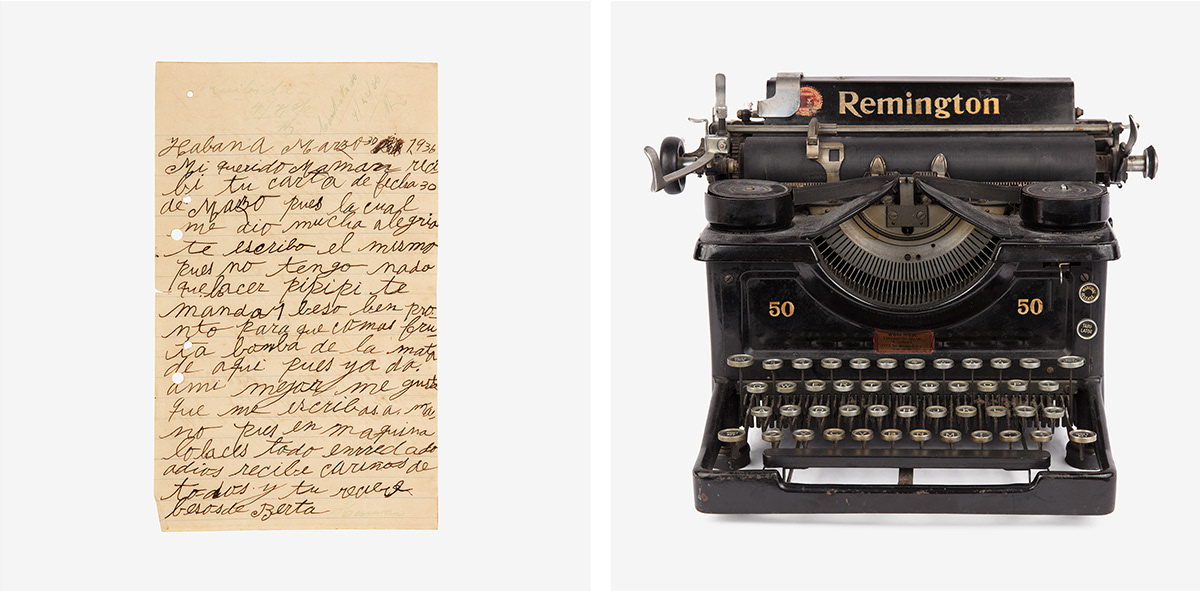 Habana Marzo 30 1936
Mi querido Maman reci
bi tu carta de fecha 30
de Marzo pues la cual
me dio mucha alegria
te escribo el mismo
pues no tengo nada
quehacer pipipi te
manda 1 beso ben pro-
nto para que comas fru-
ta bomba de la mata
de aqui pues ya da,
ami mejor me gusta
que me escribas a ma-
no pues en maquina
lo haces todo enredado
adios recibe cariños de
todos y tu recive
besos de Berta
Remington
50 50